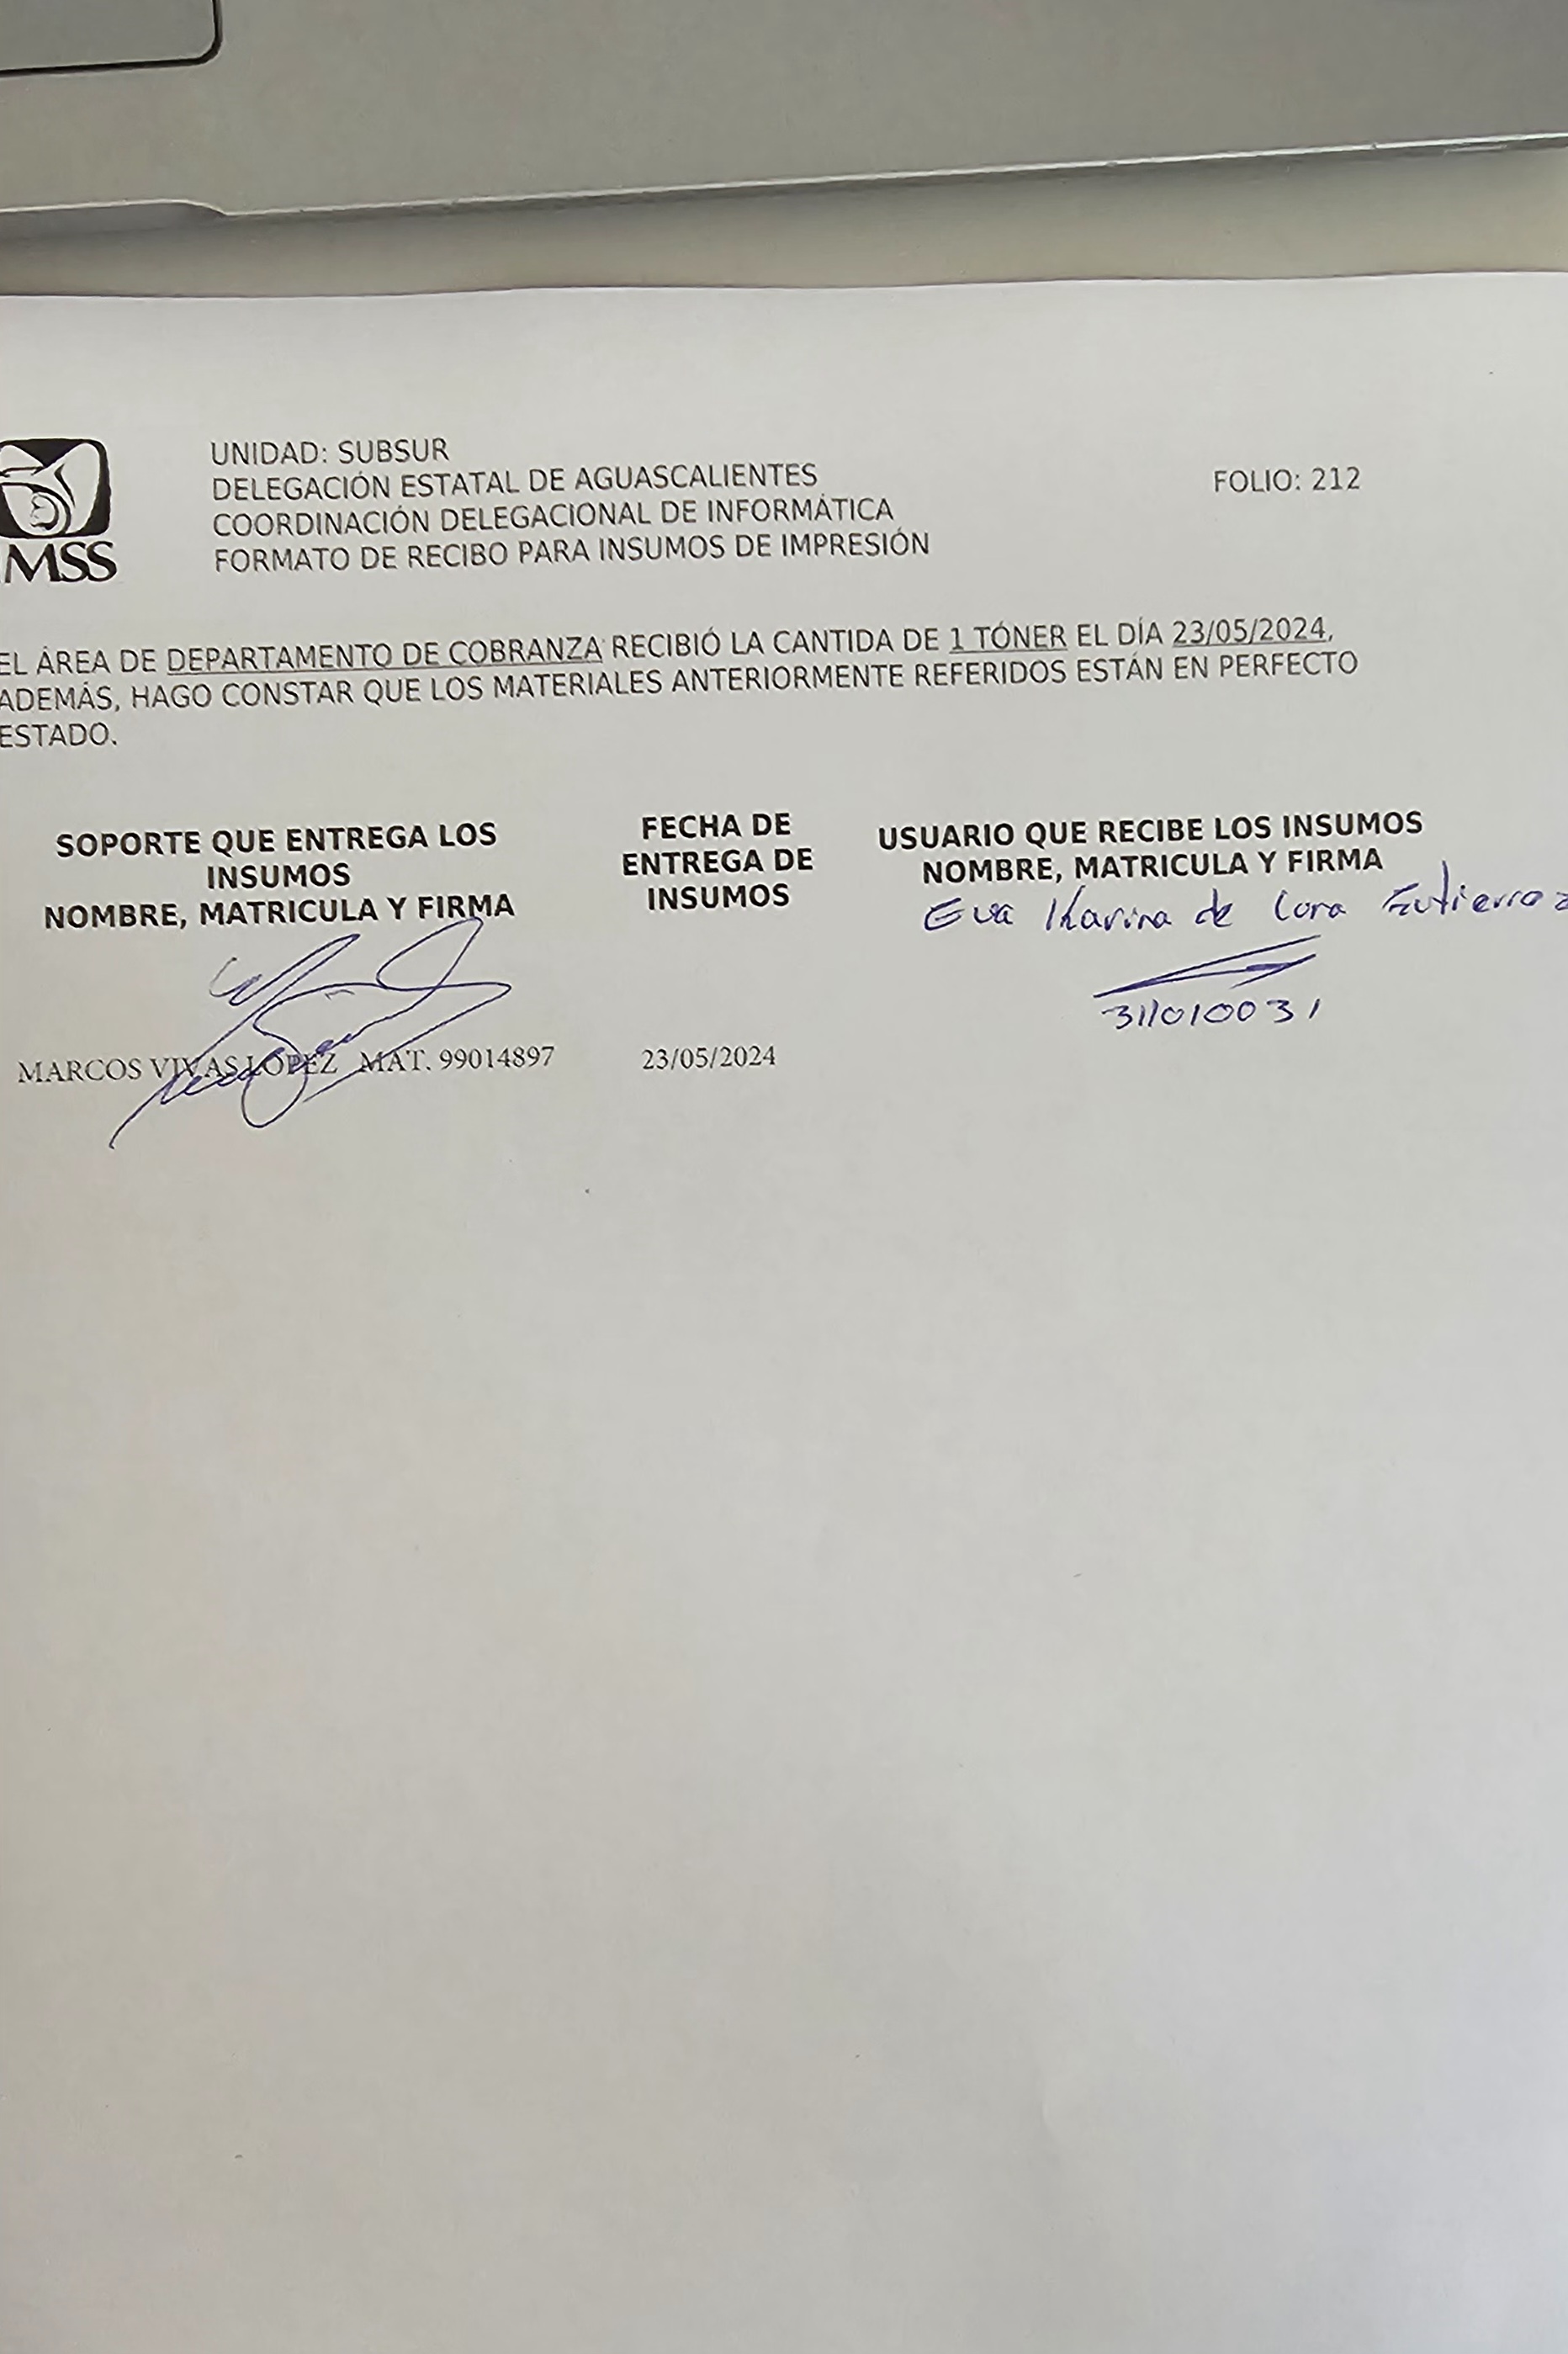 UNIDAD: SUBSUR
DELEGACIÓN ESTATAL DE AGUASCALIENTES
COORDINACIÓN DELEGACIONAL DE INFORMÁTICA
FORMATO DE RECIBO PARA INSUMOS DE IMPRESIÓN
FOLIO: 212
IMSS
EL ÁREA DE DEPARTAMENTO DE COBRANZA RECIBIÓ LA CANTIDA DE 1 TÓNER EL DÍA 23/05/2024,
ADEMÁS, HAGO CONSTAR QUE LOS MATERIALES ANTERIORMENTE REFERIDOS ESTÁN EN PERFECTO
ESTADO.
SOPORTE QUE ENTREGA LOS
INSUMOS
NOMBRE, MATRICULA Y FIRMA
MARCOS VIVAS LOPEZ MAT. 99014897
FECHA DE
ENTREGA DE
INSUMOS
23/05/2024
USUARIO QUE RECIBE LOS INSUMOS
NOMBRE, MATRICULA Y FIRMA
Eva Karina de Lara Gutierrez
311010031